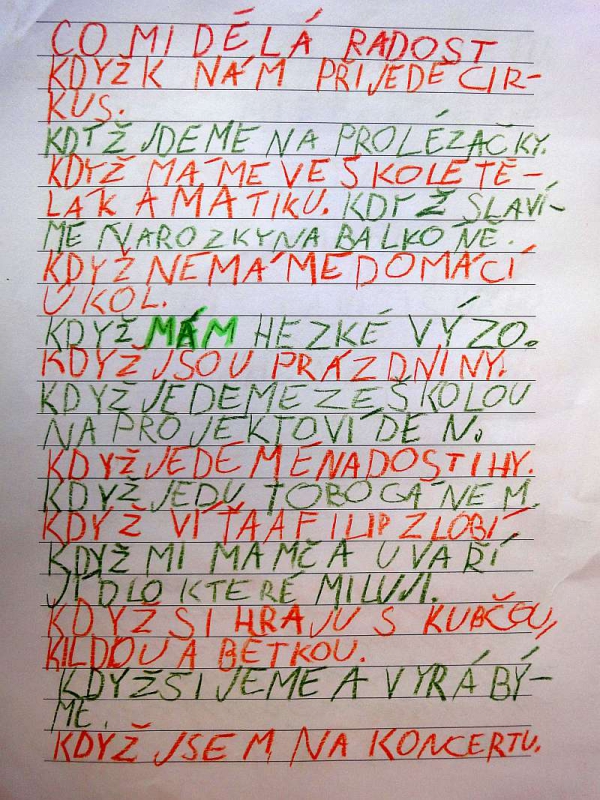 CO MI DĚLÁ RADOST
KDYŽ K NÁM PŘIJEDE CIR-
KUS.
KDYŽ JDEME NA PROLÉZAČKY.
KDYŽ MÁME VE ŠKOLE TĚ-
LÁK A MATIKU. KDYŽ SLAVÍ-
ME NAROZKY NA BALKONĚ.
KDYŽ NEMÁME DOMÁCÍ
ÚKOL.
KDYŽ MÁM HEZKÉ VÝZO.
KDYŽ JSOU PRÁZDNINY.
KDYŽ JEDEME ZE ŠKOLOU
NA PROJEKTOVÍ DEN.
KDYŽ JEDEMÉ NA DOSTIHY.
KDYŽ JEDU TOBOGÁNEM.
KDYŽ VÍŤA A FILIP ZLOBÍ
KDYŽ MI MAMČA UVAŘÍ
JÍDLO KTERÉ MILUJI.
KDYŽ SI HRAJU S KUBČOU,
KILDOU A BĚTKOU.
KDYŽ SIJEME A VYRÁBÝ-
ME.
KDYŽ JSEM NA KONCERTU.